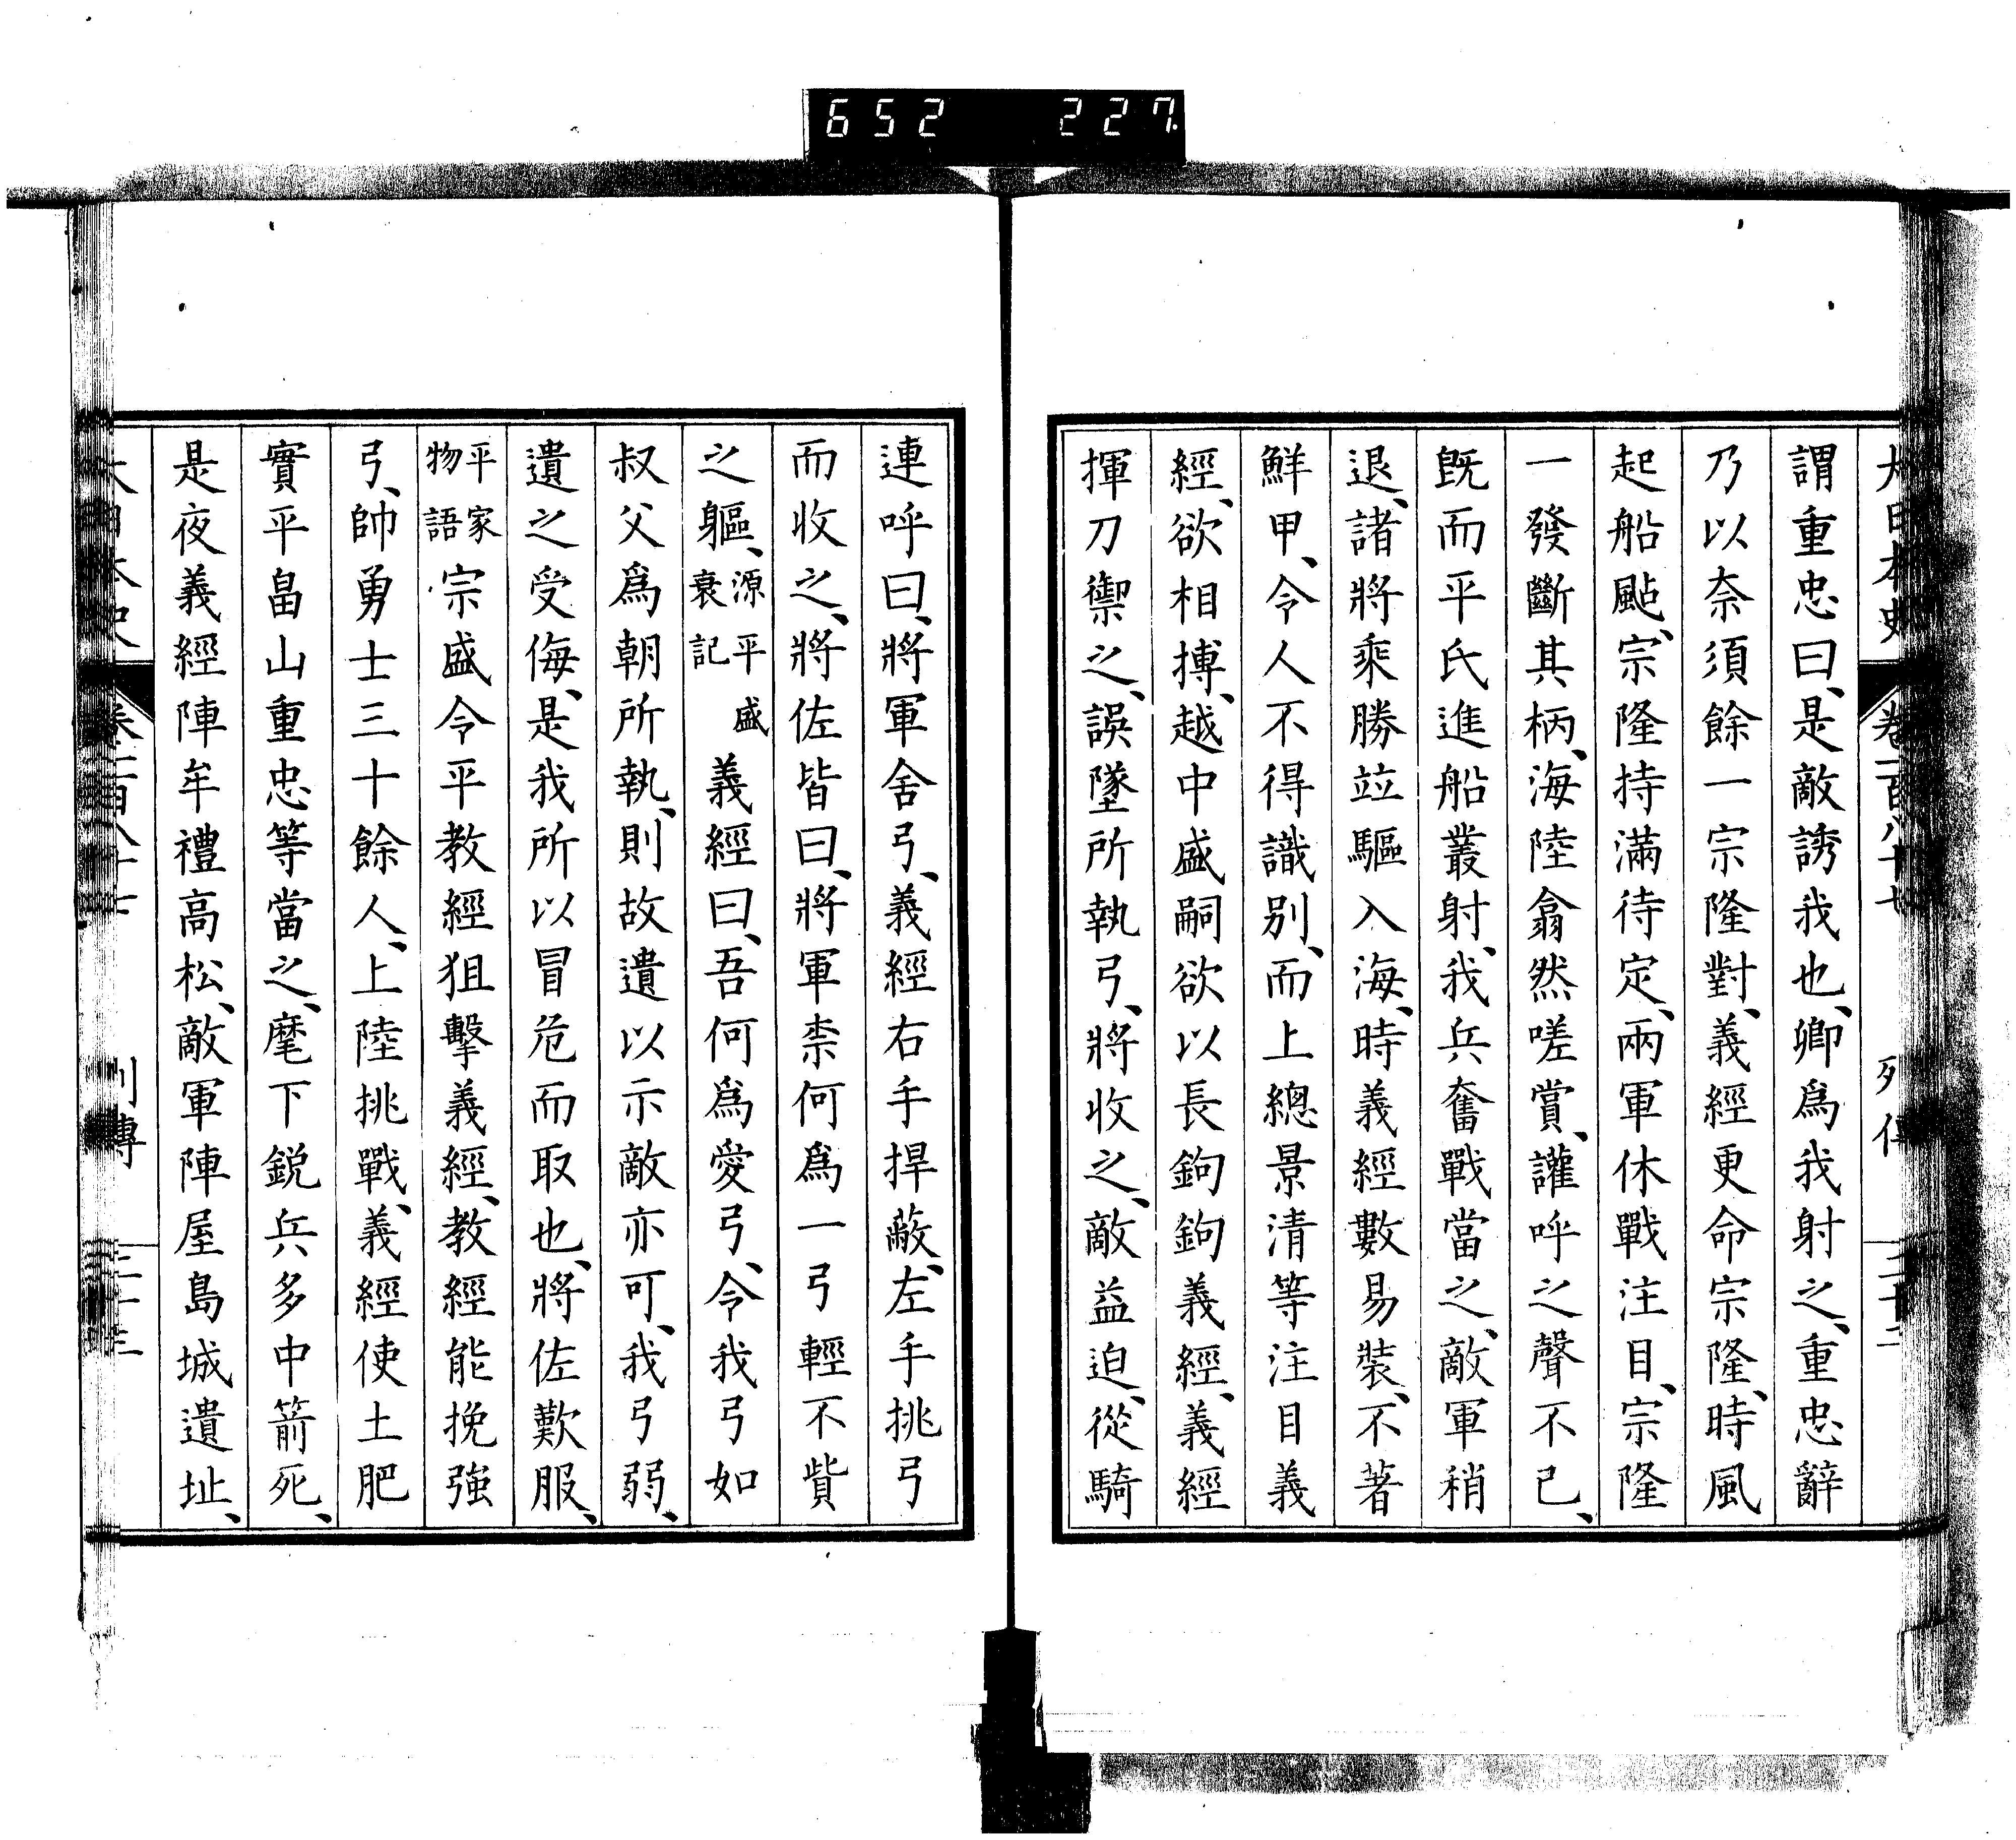 652 227
大日本史 卷一百八十七 列傳
謂重忠曰、是敵誘我也、卿爲我射之、重忠辭
乃以奈須餘一宗隆對、義經更命宗隆、時風
起船颭、宗隆持滿待定、兩軍休戰注目、宗隆
一發斷其柄、海陸翕然嗟賞、讙呼之聲不已、
旣而平氏進船叢射、我兵奮戰當之、敵軍稍
退、諸將乘勝竝驅入海、時義經數易裝、不著
鮮甲、令人不得識別、而上總景清等注目義
經、欲相搏、越中盛嗣欲以長鉤鉤義經、義經
揮刀禦之、誤墜所執弓、將收之、敵益迫、從騎
連呼曰、將軍舍弓、義經右手捍蔽、左手挑弓
而收之、將佐皆曰、將軍柰何爲一弓輕不貲
之軀、源平盛衰記 義經曰、吾何爲愛弓、令我弓如
叔父爲朝所執、則故遺以示敵亦可、我弓弱、
遺之受侮、是我所以冒危而取也、將佐歎服、
平家物語 宗盛令平教經狙擊義經、教經能挽強
弓、帥勇士三十餘人、上陸挑戰、義經使土肥
實平畠山重忠等當之、麾下銳兵多中箭死、
是夜義經陣牟禮高松、敵軍陣屋島城遺址、